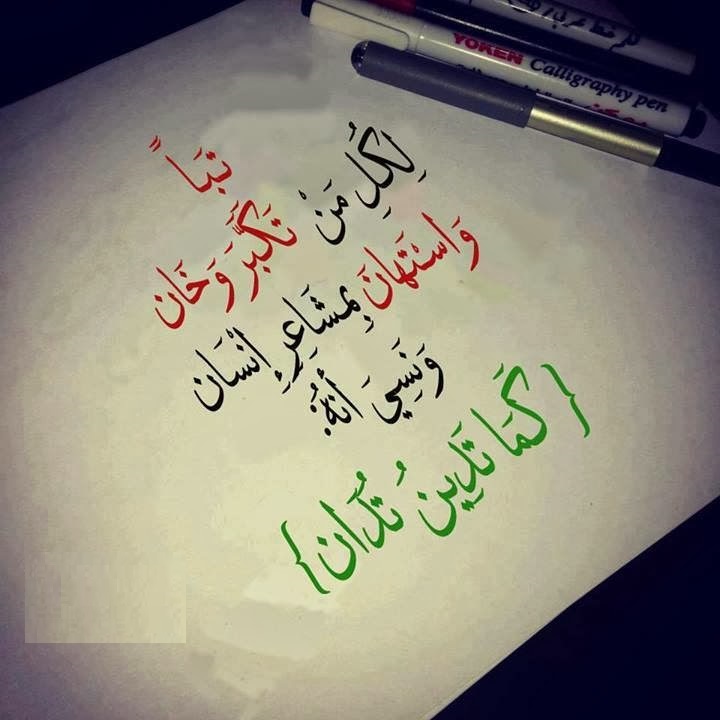 تَبَاً
لِكُلِ مَنْ تَكَبَّرَ وَخَان
وَاسْتَهانَ بِمشَاعِرِ إِنْسَان
وَنَسِيَ أنهُ:
{كَمَا تَدِين تُدَان}
YOKEN Calligraphy pen